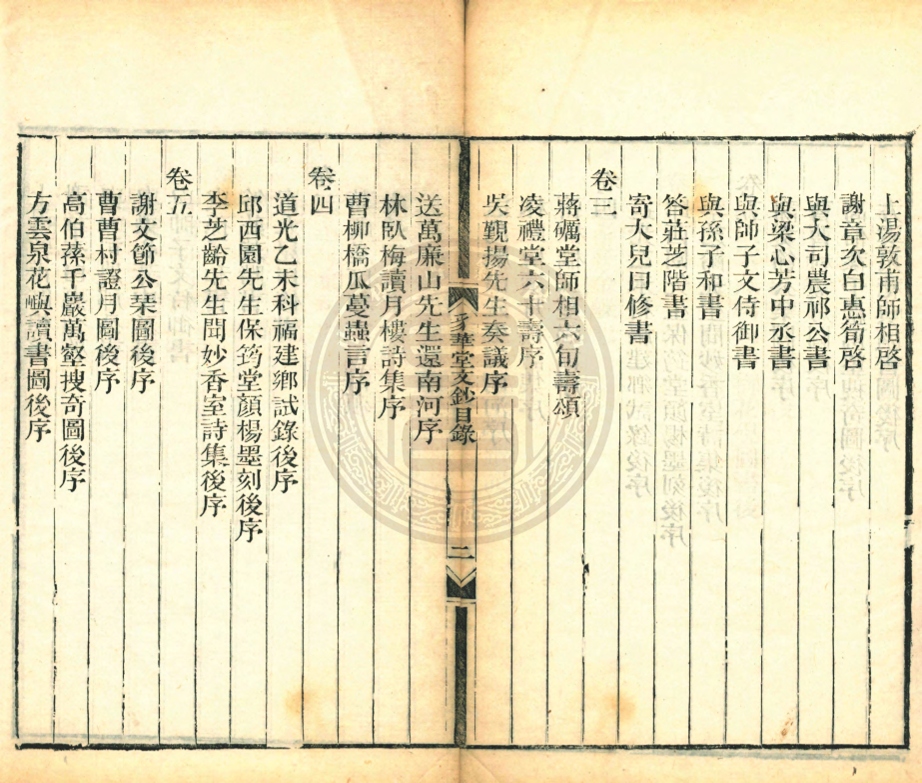 上湯敦甫師相啓
謝章次白惠筍啓
與大司農祁公書
與梁心芳中丞書
與帥子文侍御書
與孫子和書
答莊芝階書
寄大兒曰修書
卷三
蔣礪堂師相六旬壽頌
凌禮堂六十壽序
吳覲揚先生奏議序
華堂文鈔目錄
二
送萬廉山先生還南河序
林臥梅讀月樓詩集序
曹柳橋瓜蔓蟲言序
卷四
道光乙未科福建鄉試錄後序
邱西園先生保筠堂顏楊墨刻後序
李芝齡先生聞妙香室詩集後序
卷五
謝文節公琹圖後序
曹曹村證月圖後序
高伯蓀千巖萬壑搜奇圖後序
方雲泉花嶼讀書圖後序